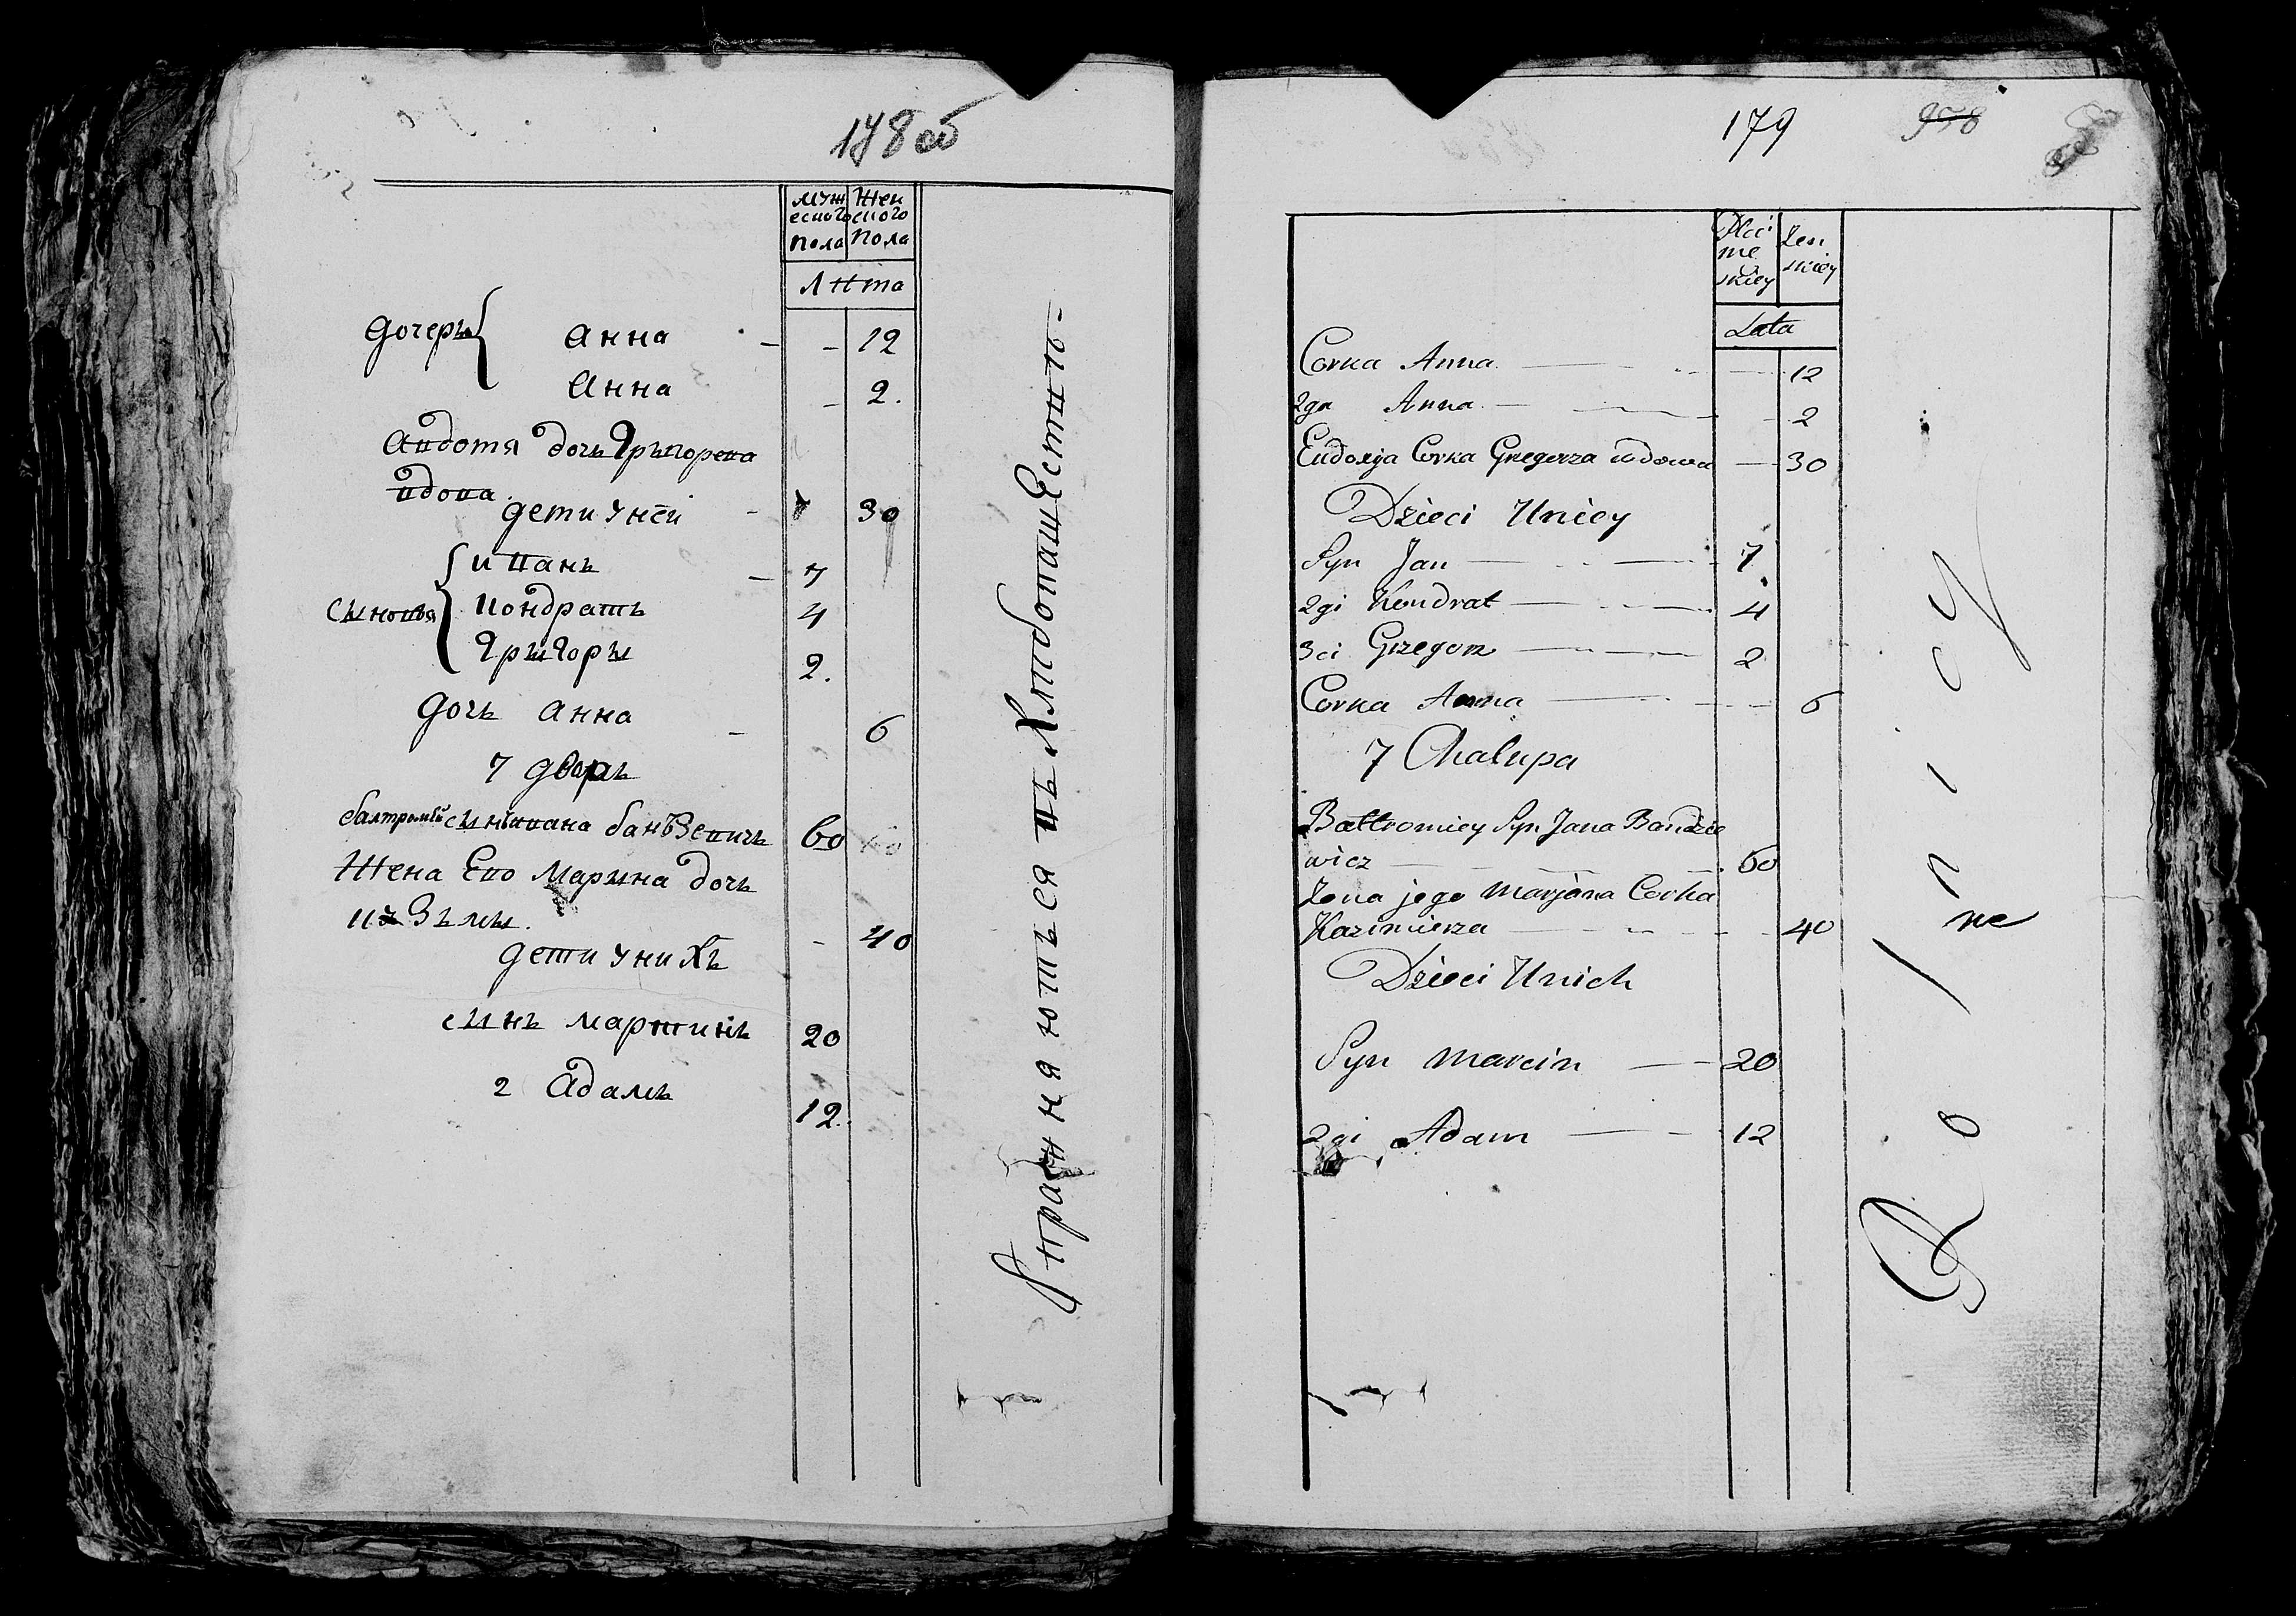 178 об
Муж Жен
еского ского
Пола Пола
Лѣта
Дочеръ Анна - - 12
Анна - 2.
Авдотя дочь Григорева
вдова
Дети Уней - 30
Сыновя Иванъ - 7
Кондратъ 4
Григоры 2.
Дочь Анна - 6
7 Дворъ
балтромѣй сынъ ивана банъЗевичъ 60
Жена Ево Марына дочь
- 40
Дети УниХъ
сынъ мартинъ 20
2 Адамъ 12.
Упражняются въ Хлѣбопашествѣ -
179 958
Płci Zen
mę skiey
skiey
Lata
Corka Anna 12
2ga Anna 2
Eudoxja Corka Grzegorza wdowa 30
Dzieci Uniey
Syn Jan 7
2gi Kondrat 4
3ci Grzegorz 2
Corka Anna 6
7 Chałupa
Bałtromiey Syn Jana Bandzie
wicz 60
Zona jego Marjana Corka
Kazimierza 40
Dzieci Unich
Syn Marcin 20
2gi Adam 12
Rolnicy